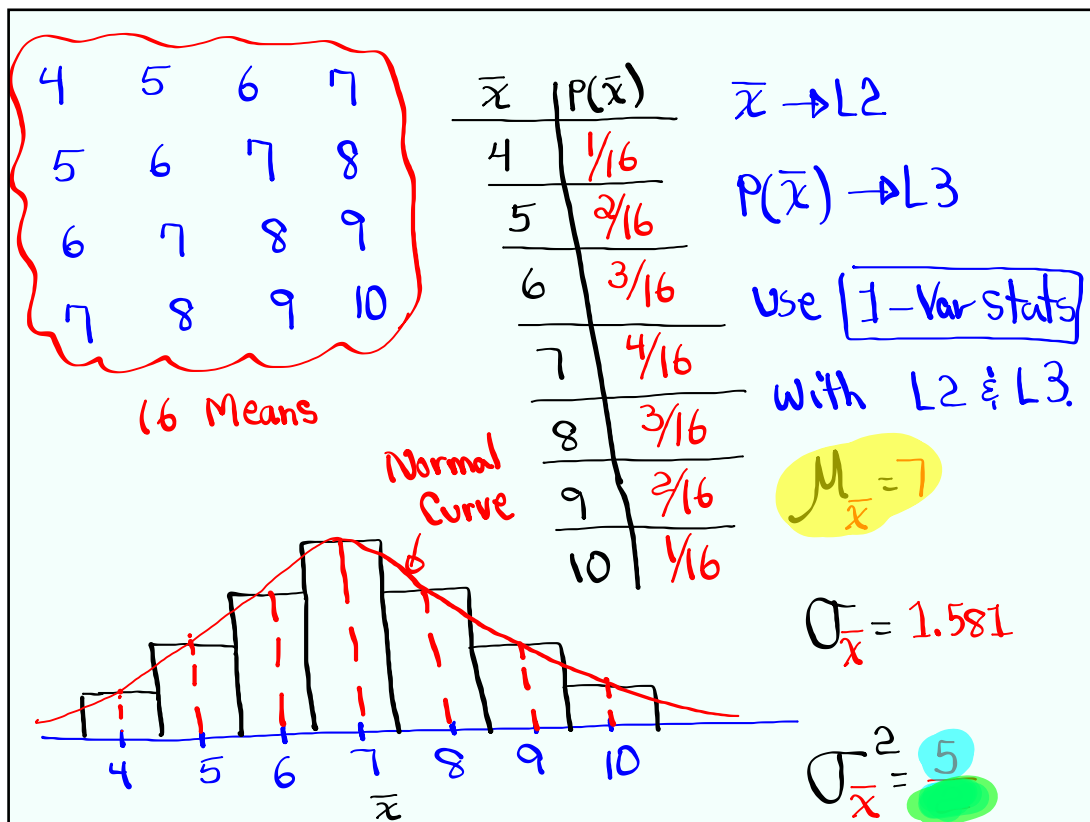 4 5 6 7
5 6 7 8
6 7 8 9
7 8 9 10
16 Means
x̄ P(x̄)
4 1/16
5 2/16
6 3/16
7 4/16
8 3/16
9 2/16
10 1/16
x̄ → L2
P(x̄) → L3
use 1-Var Stats
with L2 & L3.
μx̄ = 7
σx̄ = 1.581
σx̄² = 5
Normal
Curve
4 5 6 7 8 9 10
x̄